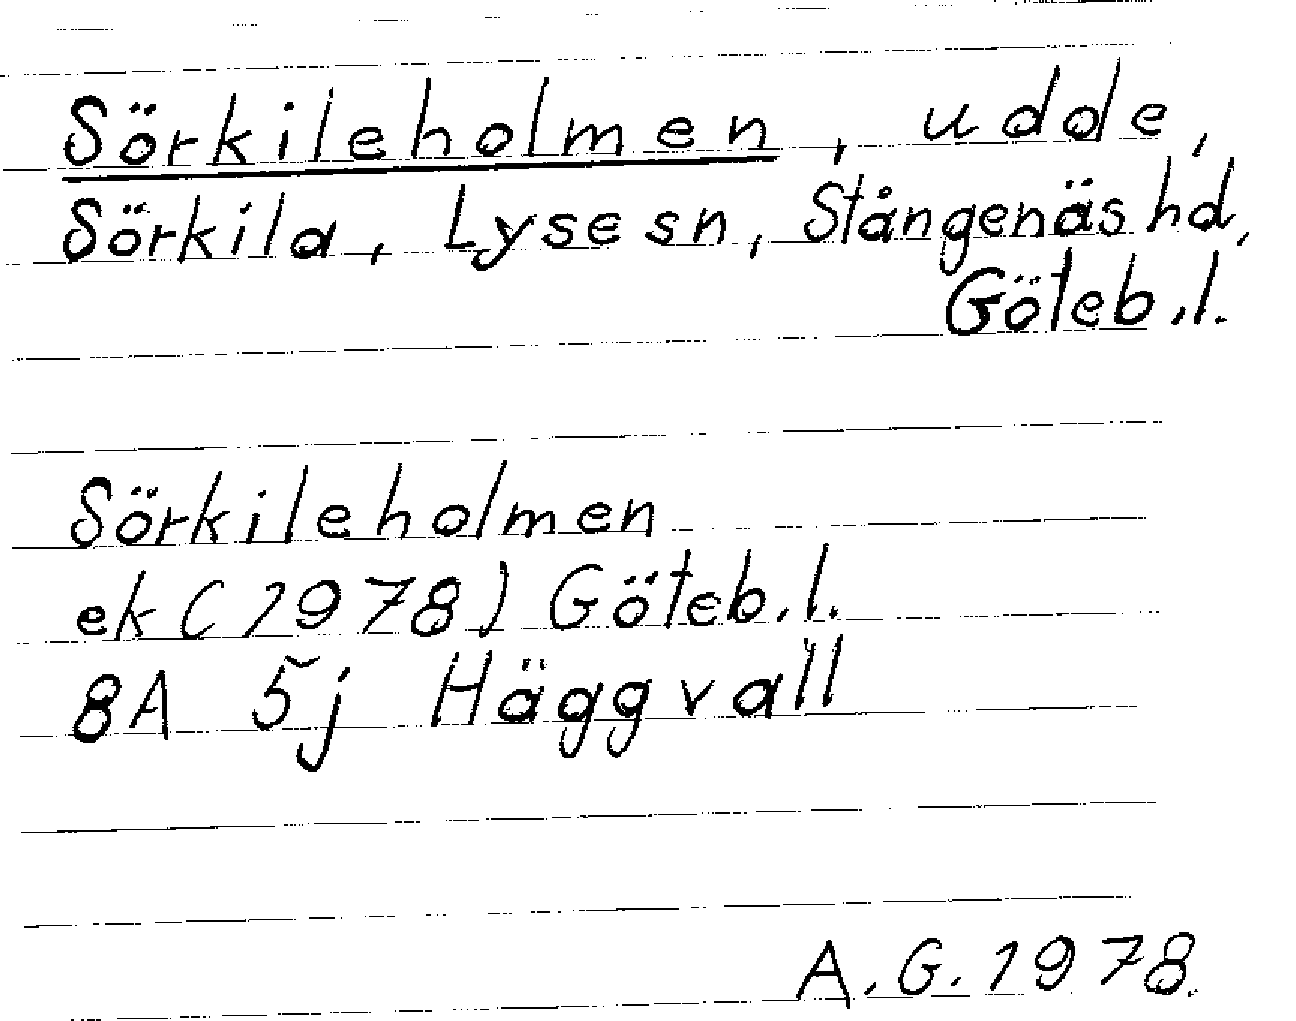 Sörkileholmen, udde,
Sörkila, Lyse sn, Stångenäs hd,
Göteb.l.
Sörkileholmen
ek (1978) Göteb.l.
8A 5j Häggvall
A.G. 1978.